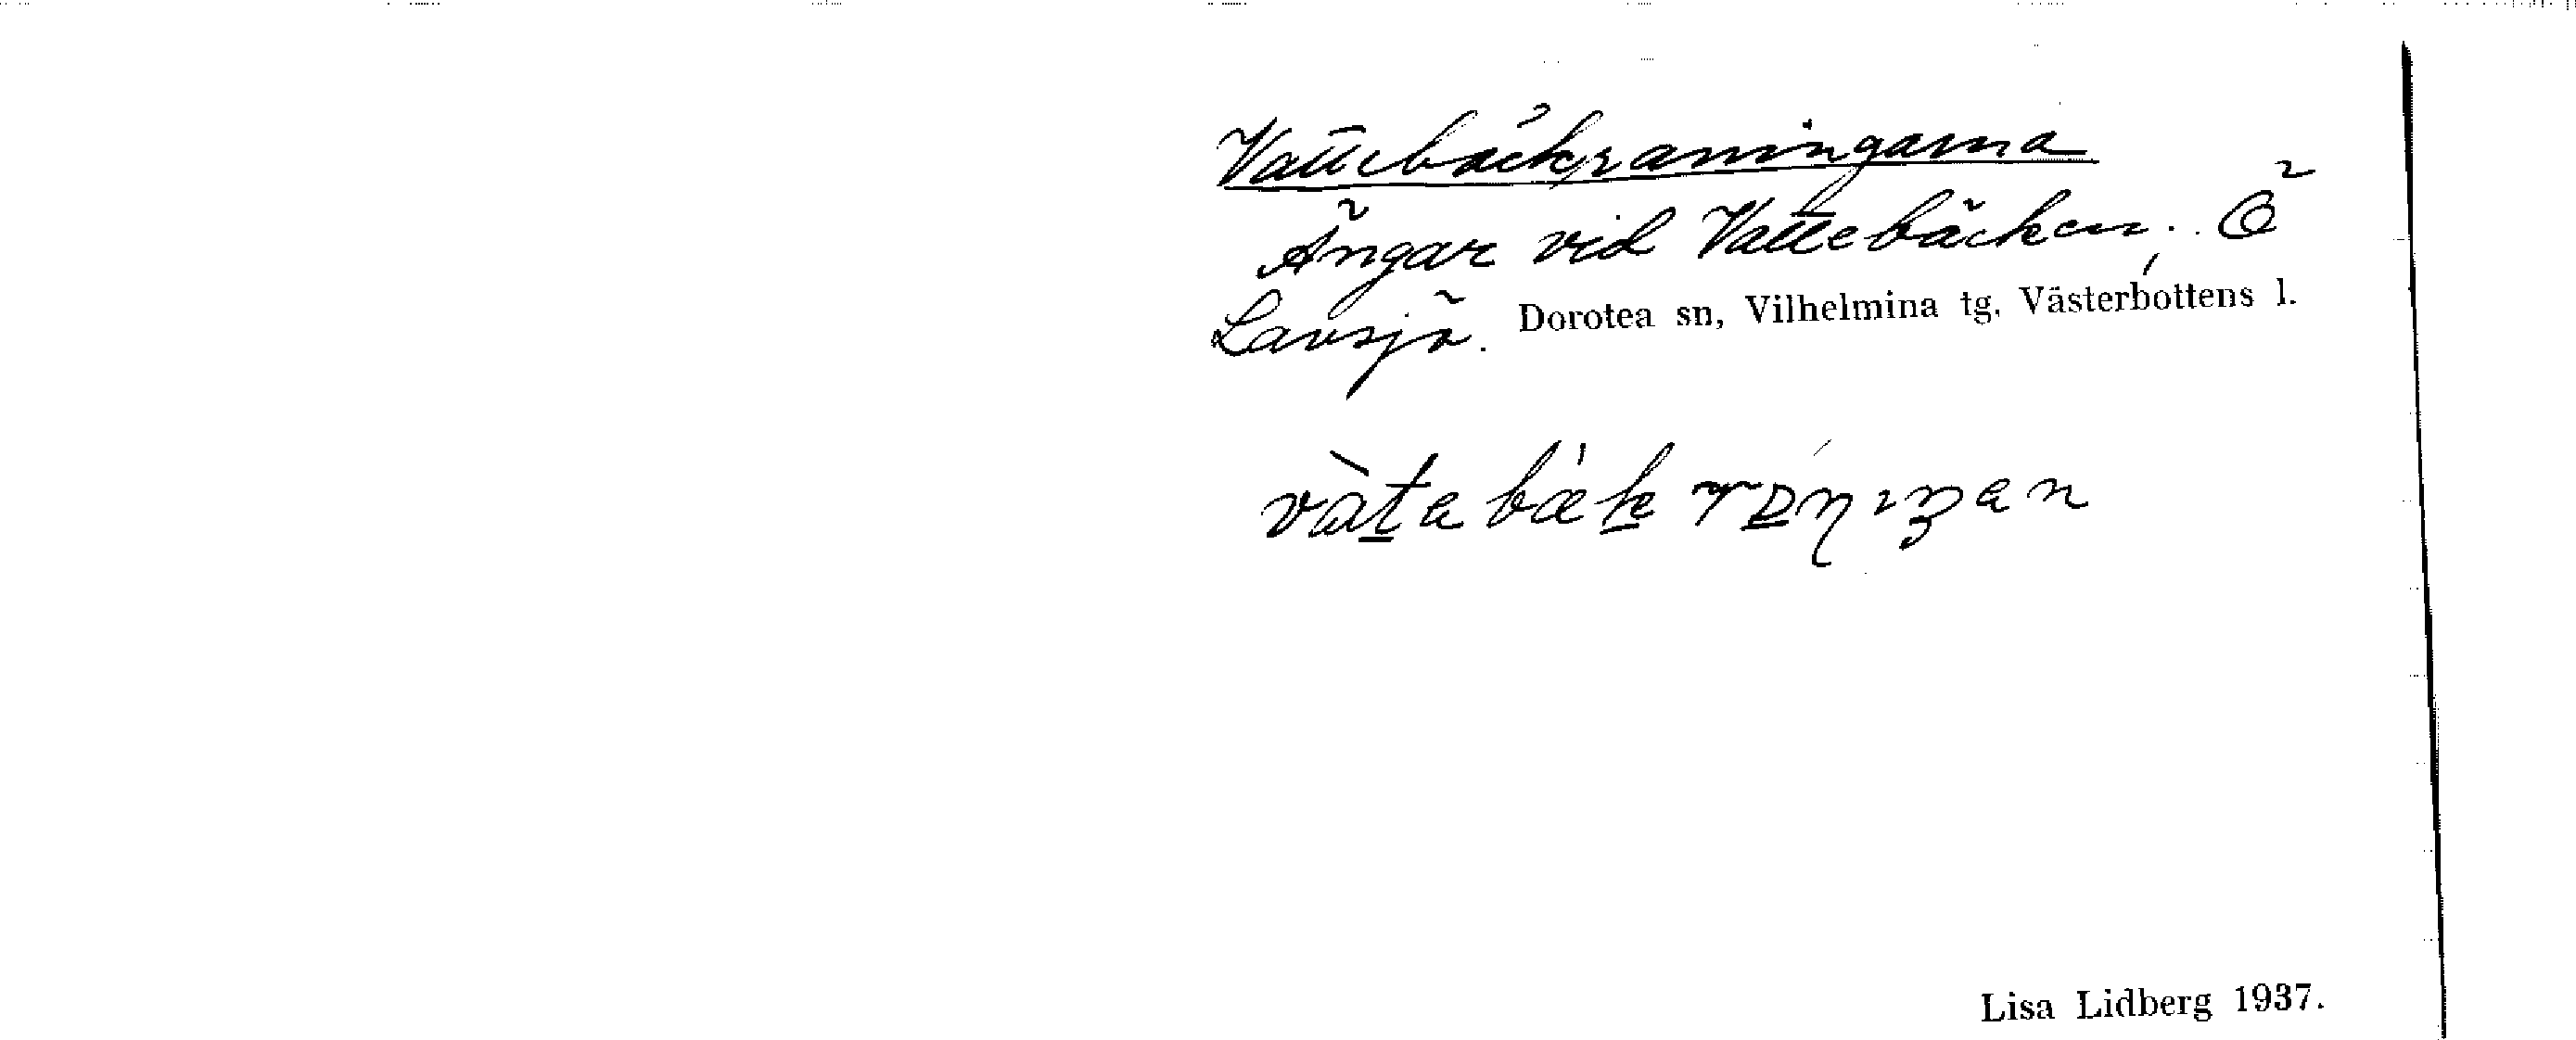 Vattebäckraningarna
Ängar vid Vattebäcken, Ö
Lavsjö. Dorotea sn, Vilhelmina tg, Västerbottens l.
Lisa Lidberg 1937.